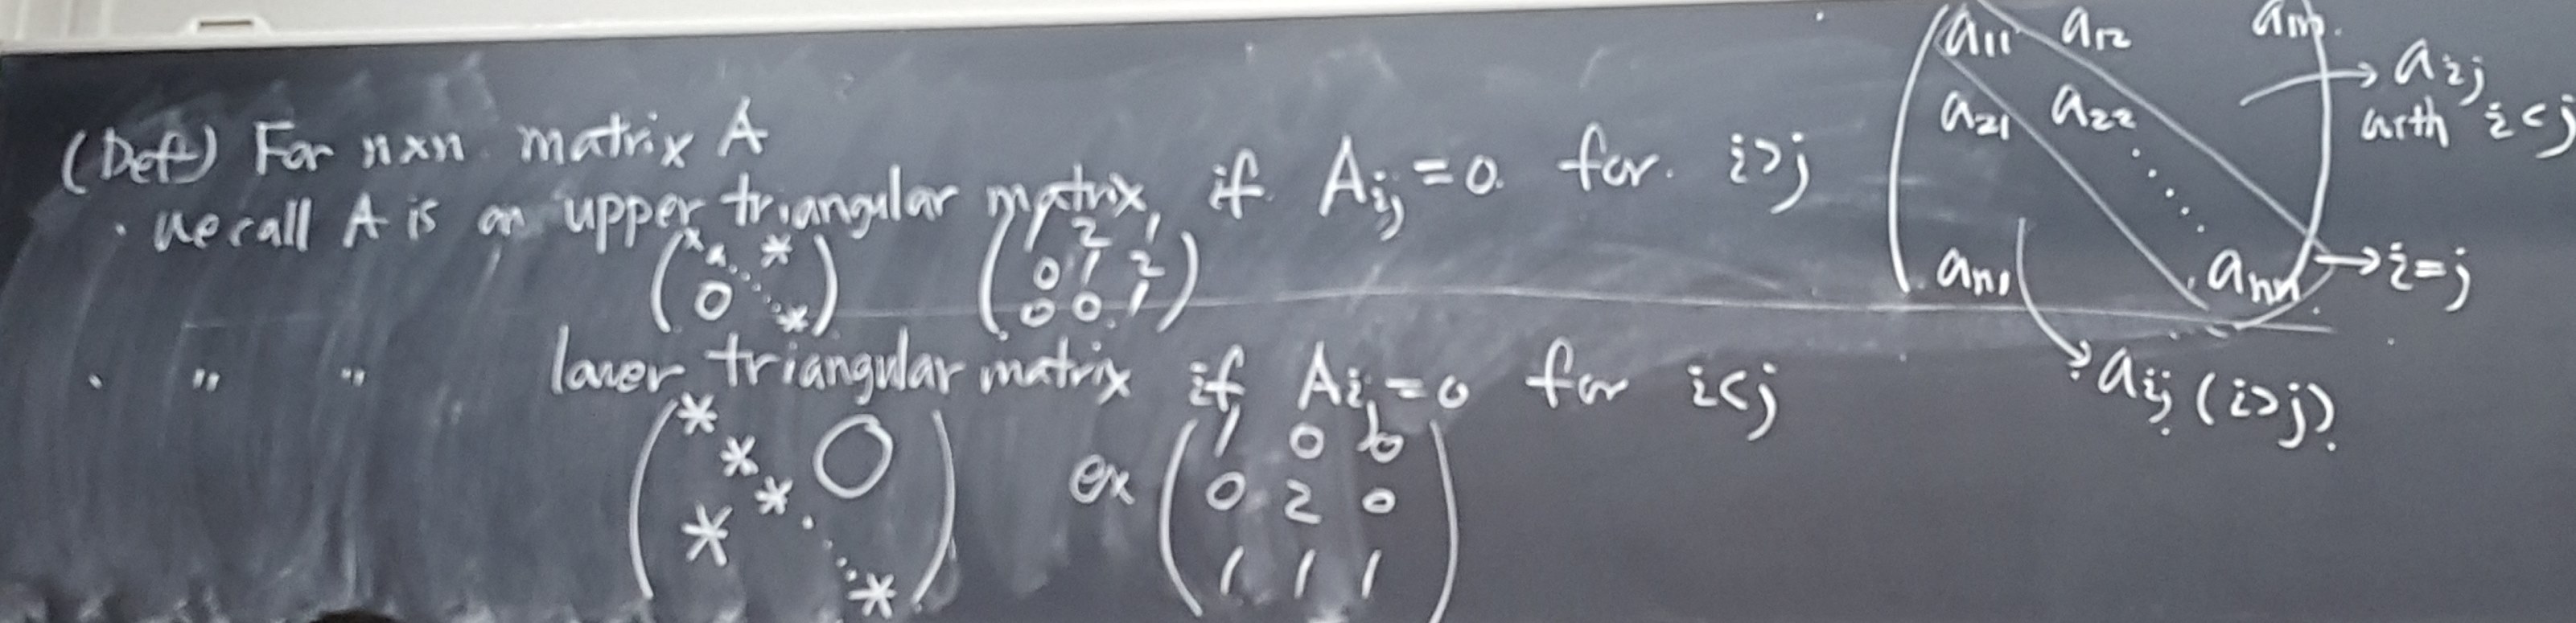 (Def) For n×n matrix A
· We call A is an upper triangular matrix, if A_ij = 0 for i>j
( * * 0 * ) ( 1 2 1
0 1 2
0 0 1 )
· " " lower triangular matrix if A_ij = 0 for i<j
( * * O
* *
* ) ex ( 1 0 0
0 2 0
1 1 1 )
a11 a12 a1n
a21 a22
an1 ann
→ aij with i<j
→ i=j
→ aij (i>j)